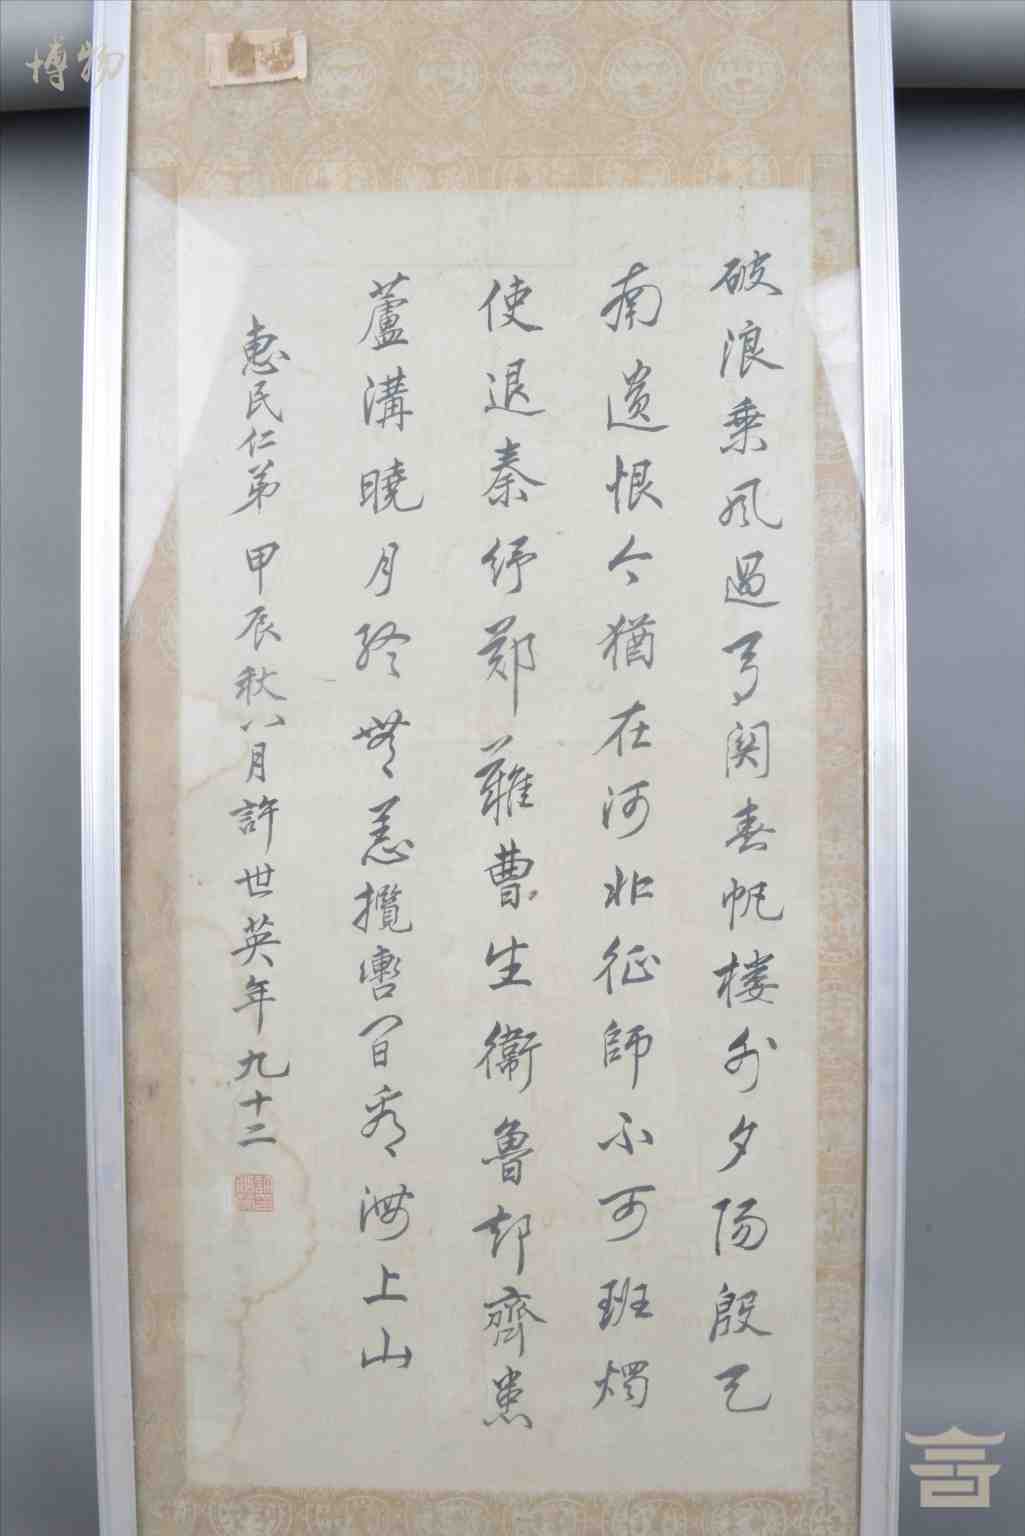 破浪乘風過馬關春帆樓外夕陽殷天
南遺恨今猶在河北征師不可班燭
使退秦紓鄭難曹生衛魯却齊患
蘆溝曉月終無恙攬轡間看海上山
惠民仁弟 甲辰秋八月許世英年九十二
博物